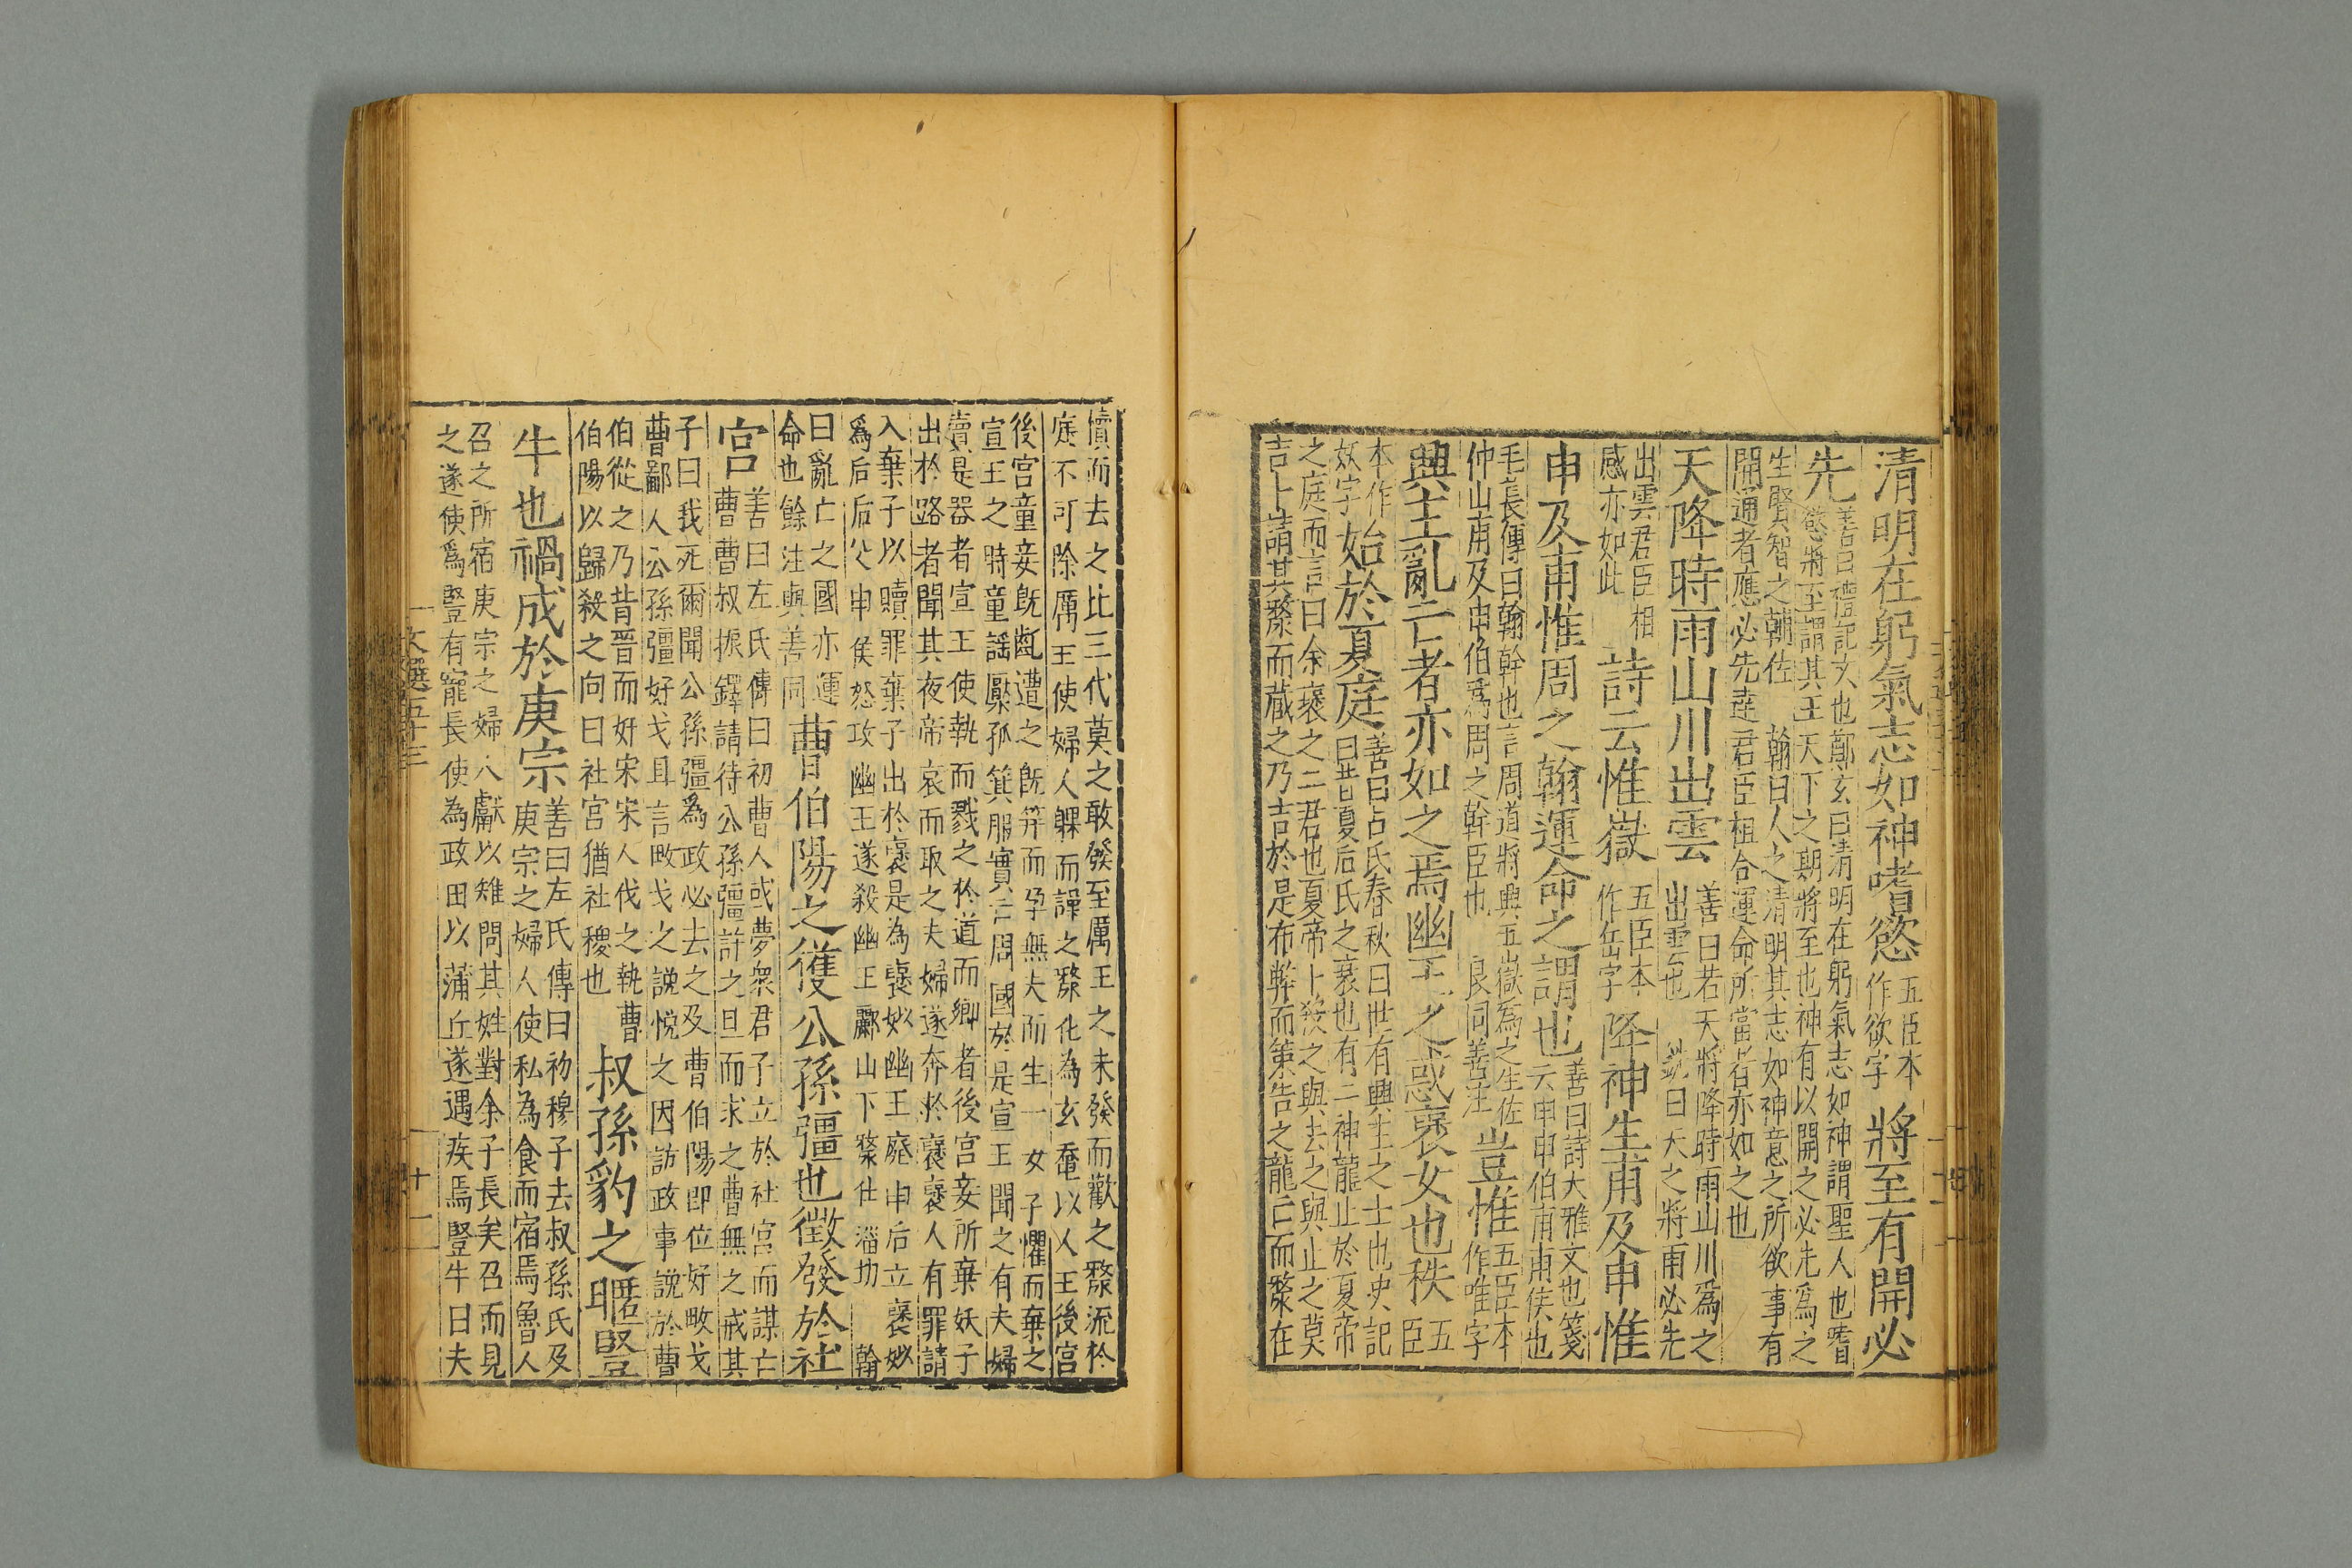 清明在躬氣志如神嗜慾
五臣本
作欲字
將至有開必
先
善曰禮記文也鄭玄曰清明在躬氣志如神謂聖人也嗜
慾將至謂其王天下之期將至也神有以開之必先為之
生賢智之輔佐
翰曰人之清明其志如神意之所欲事有
開通者應必先達君臣相合運命所當者亦如之也
天降時雨山川出雲
善曰若天將降時雨山川爲之
出雲也
銑曰天之將雨必先
出雲君臣相
感亦如此
詩云惟嶽
五臣本
作岳字
降神生甫及申惟
申及甫惟周之翰運命之謂也
善曰詩大雅文也箋
云申申伯甫甫侯也
毛萇傳曰翰幹也言周道將興五嶽爲之生佐
仲山甫及申伯爲周之幹臣也
良同善注
豈惟
五臣本
作唯字
興主亂亡者亦如之焉幽王之惑襃女也祅
五臣
本作
妖字
始於夏庭
善曰呂氏春秋曰世有興主之士也史記
曰昔夏后氏之衰也有二神龍止於夏帝
之庭而言曰余襃之二君也夏帝卜殺之與去之與止之莫
吉卜請其漦而藏之乃吉於是布幣而策告之龍亡而漦在
櫝而去之比三代莫之敢發至厲王之末發而觀之漦流於
庭不可除厲王使婦人躶而譟之漦化為玄黿以入王後宮
後宮童妾旣齓遭之旣筓而孕無夫而生一女子懼而棄之
宣王之時童謠曰檿弧箕服實亡周國於是宣王聞之有夫婦
賣是器者宣王使執而戮之於道而鄉者後宮妾所棄妖子
出於路者聞其夜啼哀而取之夫婦遂奔於襃襃人有罪請
入棄子以贖罪棄子出於襃是為襃姒幽王廢申后立襃姒
爲后后父申侯怒攻幽王遂殺幽王酈山下漦仕淄切
翰
曰亂亡之國亦運
命也餘注與善同
曹伯陽之獲公孫彊也徵發於社
宮
善曰左氏傳曰初曹人或夢衆君子立於社宮而謀亡
曹曹叔振鐸請待公孫彊許之旦而求之曹無之戒其
子曰我死爾聞公孫彊爲政必去之及曹伯陽即位好畋弋
曹鄙人公孫彊好弋且言畋弋之說悅之因訪政事說於曹
伯從之乃背晉而奸宋宋人伐之執曹
伯陽以歸殺之向曰社宮猶社稷也
叔孫豹之暱豎
牛也禍成於庚宗
善曰左氏傳曰初穆子去叔孫氏及
庚宗之婦人使私為食而宿焉魯人
召之所宿庚宗之婦人獻以雉問其姓對余子長矣召而見
之遂使爲豎有寵長使為政田以蒲丘遂遇疾焉豎牛曰夫
文選五十三
十一